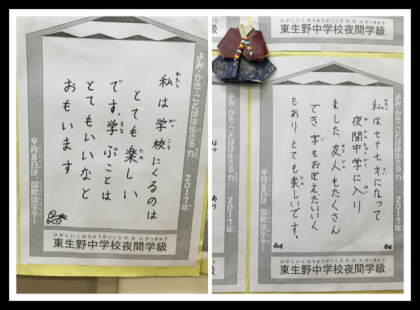 よみ・かき・ことばは生きる力 2017年
私は学校にくるのは
とても楽しい
です。学ぶことは
とてもいいなと
おもいます
9月8日は、国際識字デー
ひがしいくのちゅうがっこうやかんがっきゅう
東生野中学校夜間学級
ひがしいくのちゅうがっこうやかんがっきゅう
東生野中学校夜間学級
よみ・かき・ことばは生きる力 2017年
私は七十七才になって
夜間中学に入り
ました。友人もたくさん
でき、字もおぼえだいく
もあり、とても楽しいです。
9月8日は、国際識字デー
ひがしいくのちゅうがっこうやかんがっきゅう
東生野中学校夜間学級